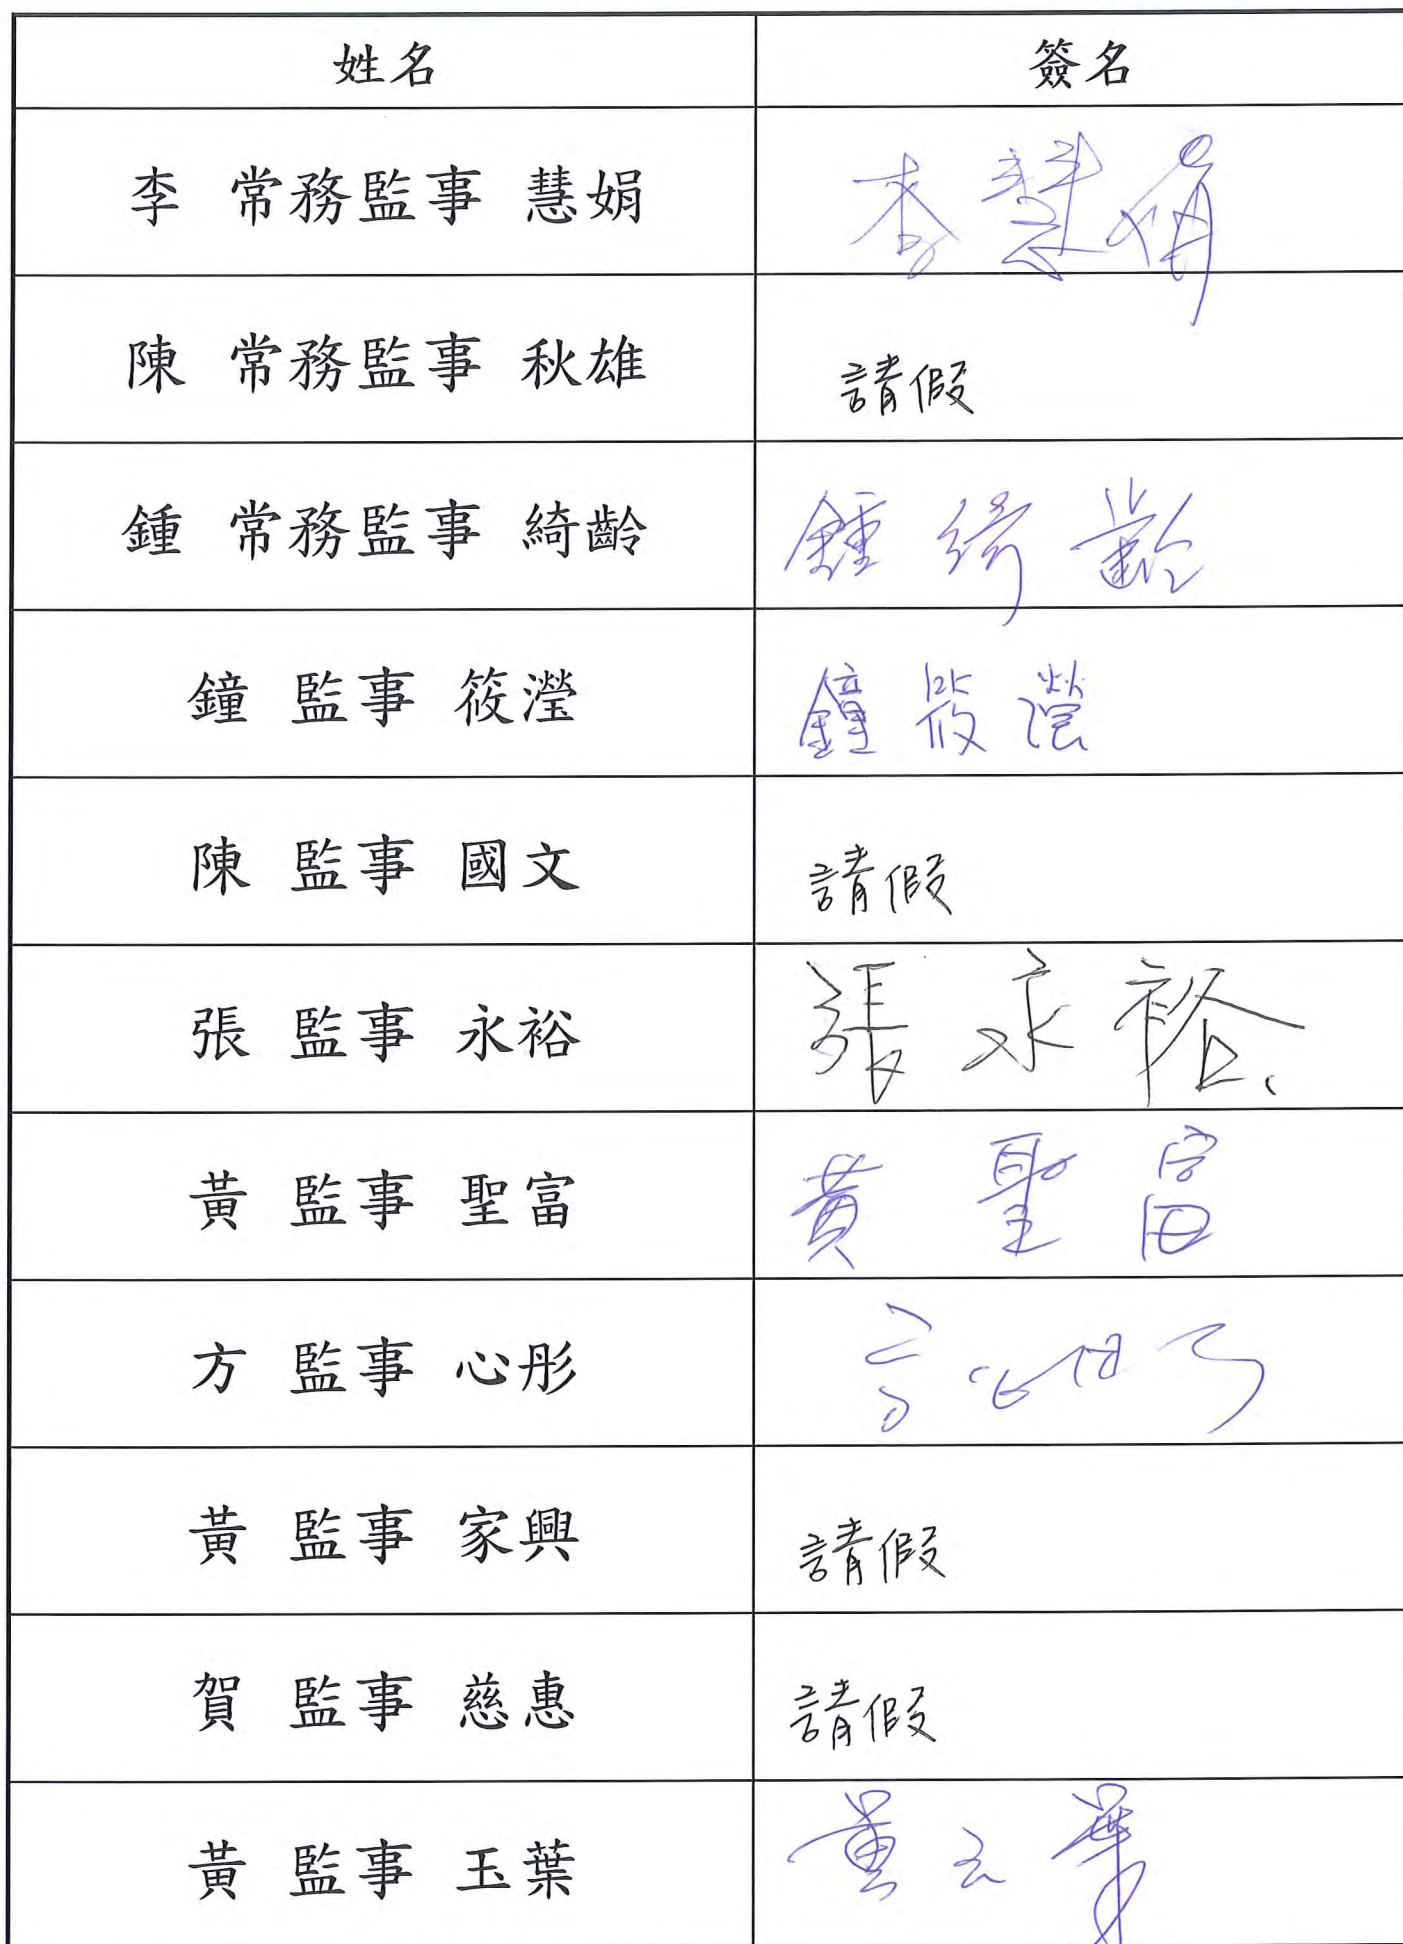 姓名 簽名
李 常務監事 慧娟 李慧娟
陳 常務監事 秋雄 請假
鍾 常務監事 綺齡 鍾綺齡
鐘 監事 筱瀅 鐘筱瀅
陳 監事 國文 請假
張 監事 永裕 張永裕
黃 監事 聖富 黃聖富
方 監事 心彤 方心彤
黃 監事 家興 請假
賀 監事 慈惠 請假
黃 監事 玉葉 黃玉葉